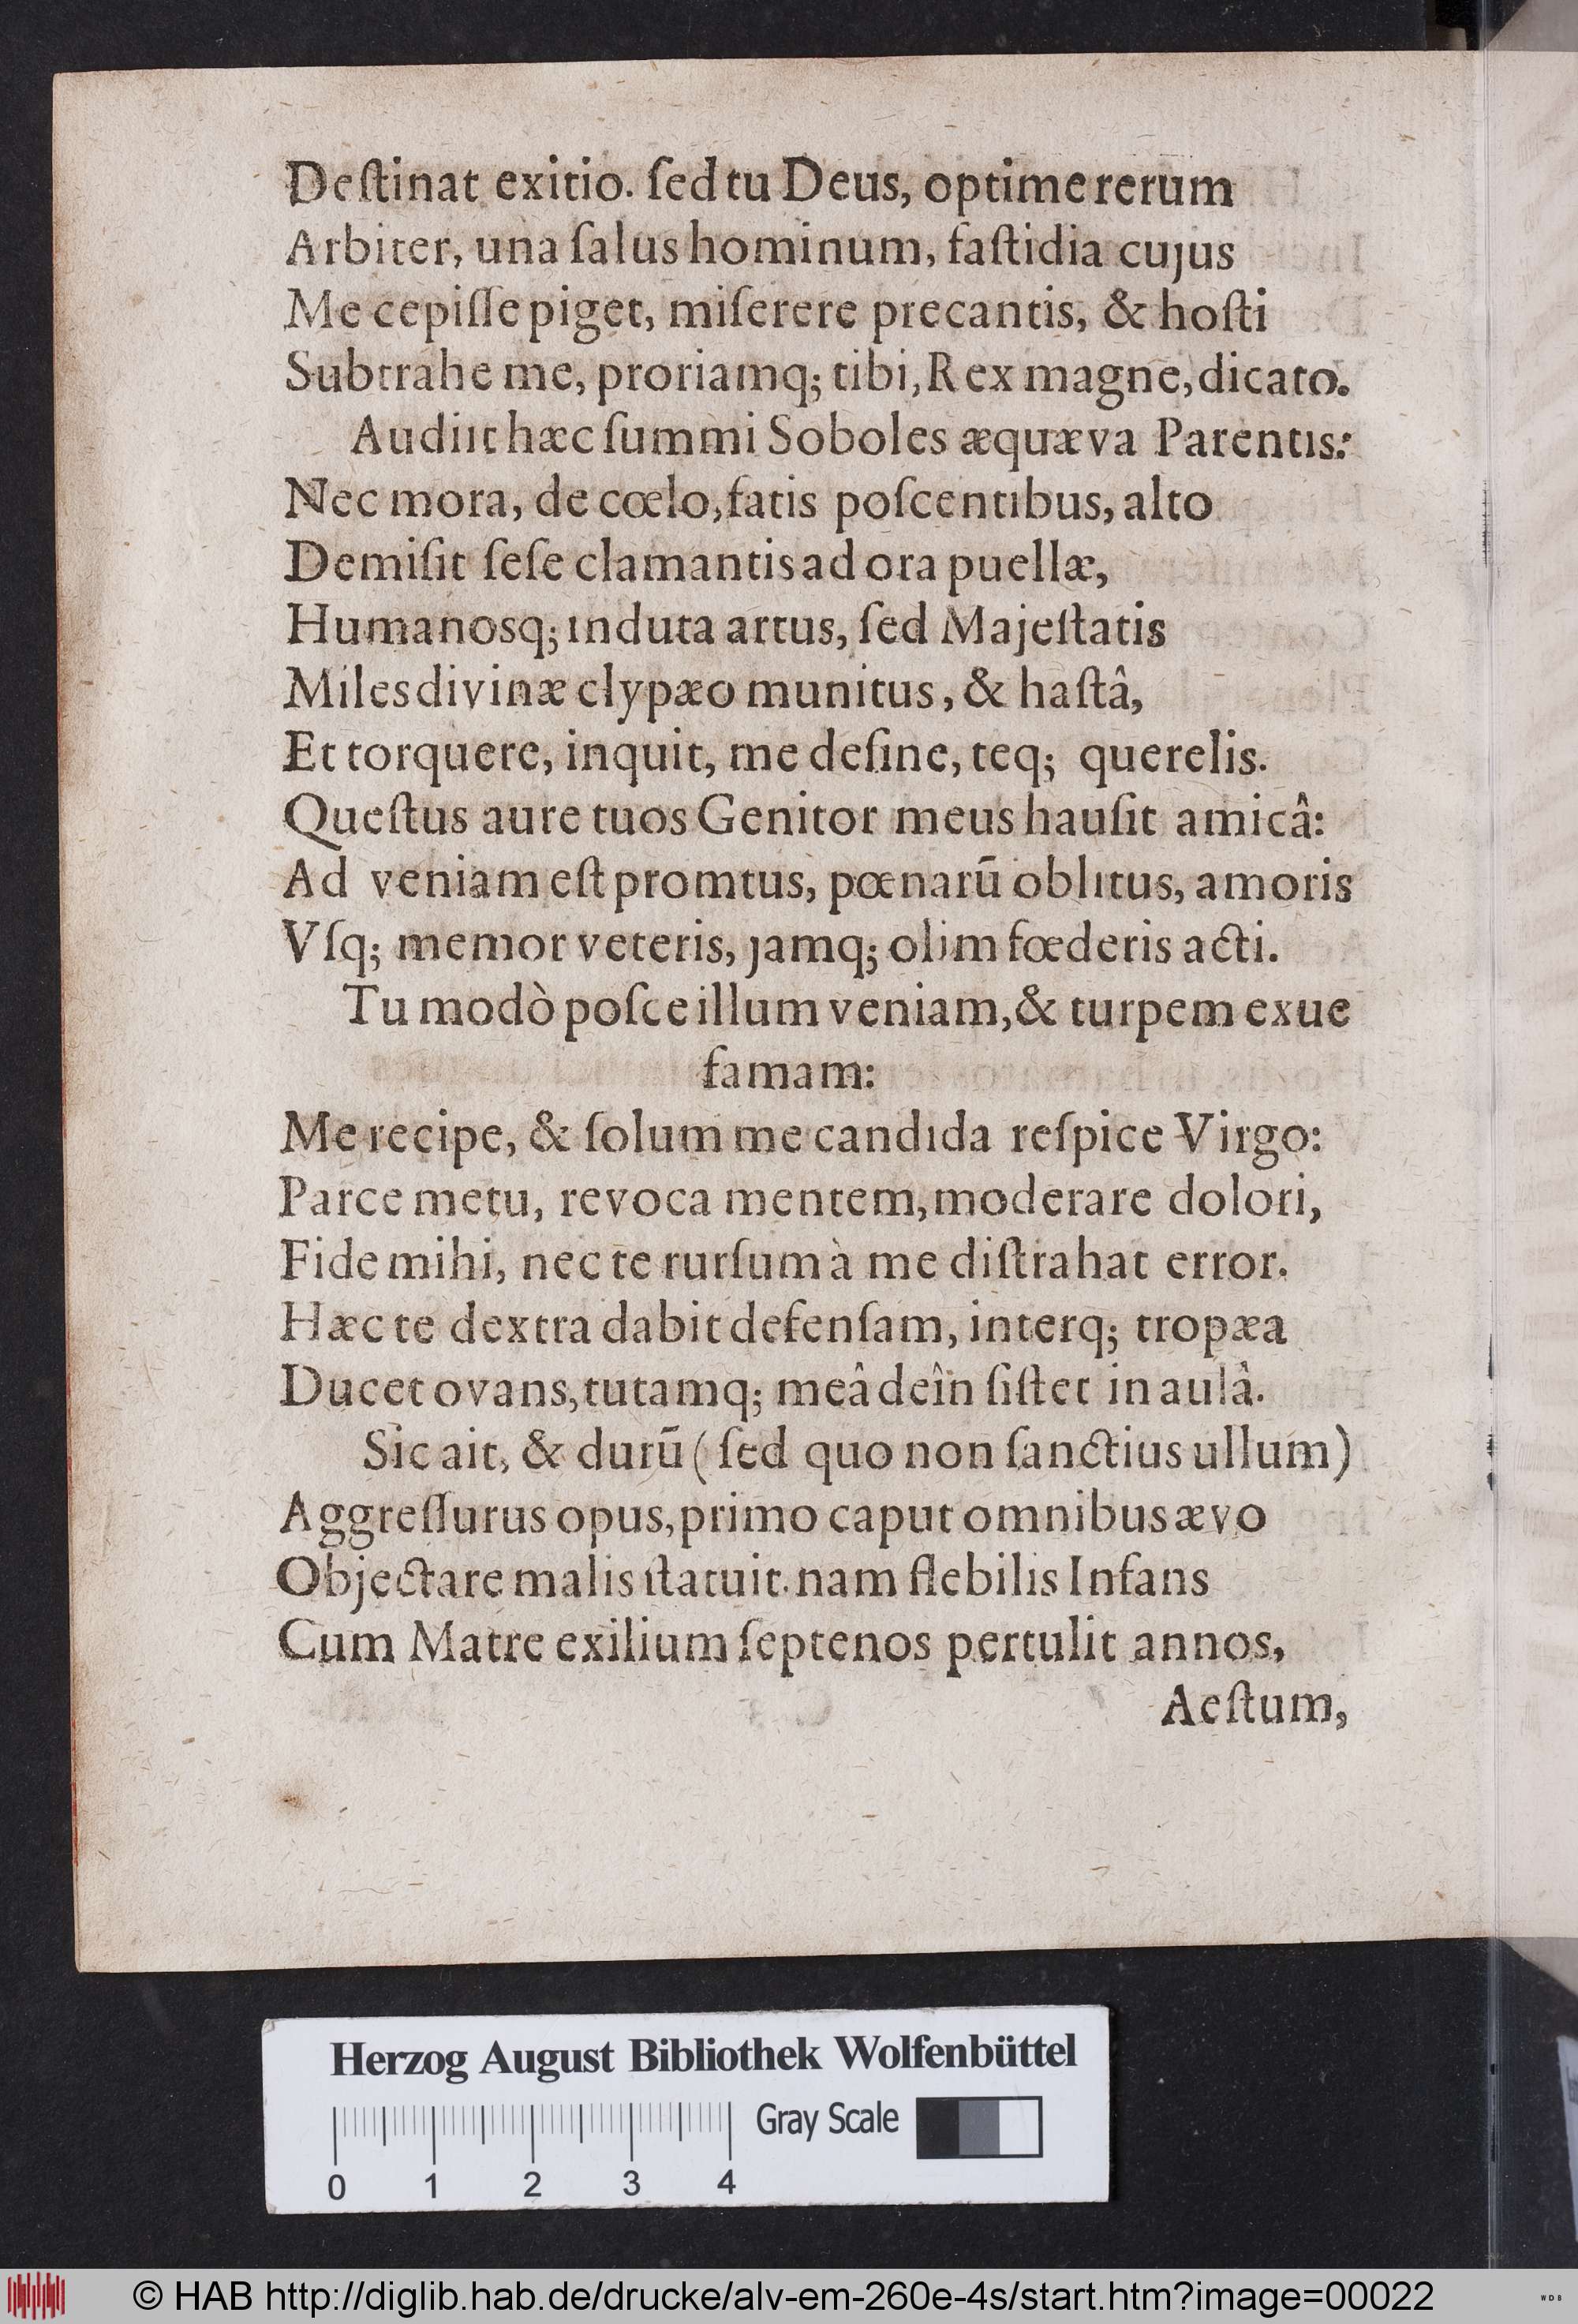 Deſtinat exitio. ſed tu Deus, optime rerum
Arbiter, una ſalus hominum, faſtidia cujus
Me cepiſſe piget, miſerere precantis, & hoſti
Subtrahe me, proriamq; tibi, Rex magne, dicato.
Audiit hæc ſummi Soboles æquæva Parentis:
Nec mora, de cœlo, fatis poſcentibus, alto
Demiſit ſeſe clamantis ad ora puellæ,
Humanosq; induta artus, ſed Majeſtatis
Miles divinæ clypæo munitus, & haſtâ,
Et torquere, inquit, me deſine, teq; querelis.
Queſtus aure tuos Genitor meus hauſit amicâ:
Ad veniam eſt promtus, pœnarū oblitus, amoris
Vſq; memor veteris, jamq; olim fœderis acti.
Tu modò poſce illum veniam, & turpem exue
famam:
Me recipe, & ſolum me candida reſpice Virgo:
Parce metu, revoca mentem, moderare dolori,
Fide mihi, nec te rurſum à me diſtrahat error.
Hæc te dextra dabit defenſam, interq; tropæa
Ducet ovans, tutamq; meâ deîn ſiſtet in aulâ.
Sic ait, & durū (ſed quo non ſanctius ullum)
Aggreſſurus opus, primo caput omnibus ævo
Objectare malis ſtatuit. nam flebilis Infans
Cum Matre exilium ſeptenos pertulit annos,
Aeſtum,
Herzog August Bibliothek Wolfenbüttel
Gray Scale
0 1 2 3 4
© HAB http://diglib.hab.de/drucke/alv-em-260e-4s/start.htm?image=00022
WDB